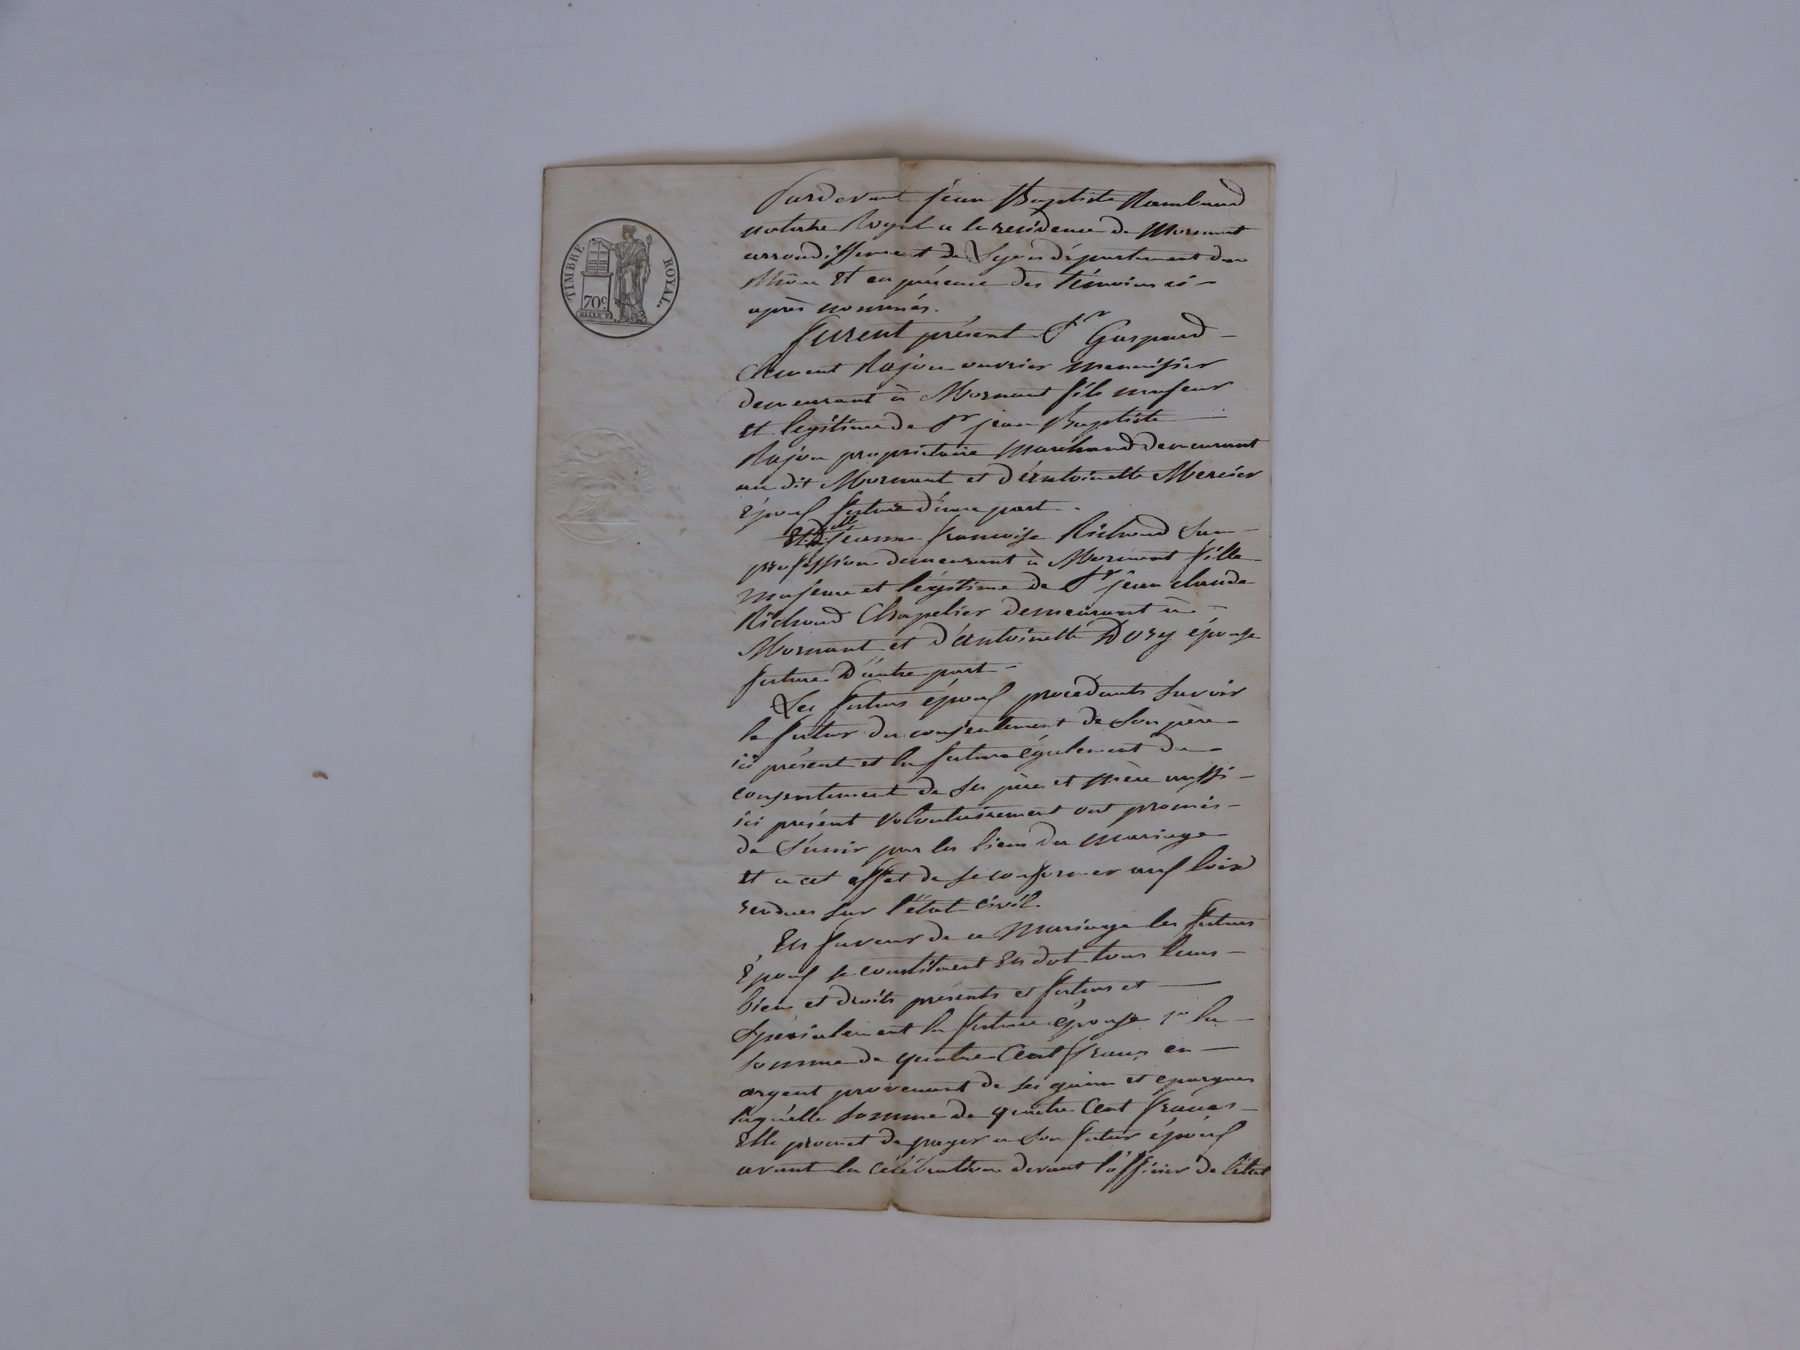 TIMBRE ROYAL.
70c
Pardevant jean Baptiste Rambaud
notaire Royal a la residence de Mornant
arrondissement de Lyon département du
Rhône Et en présence des témoins ci -
après nommés.
furent présent Sr Gaspard -
Clément Rajon ouvrier menuisier
demeurant à Mornant fils majeur
et légitime de Sr jean Baptiste
Rajon propriétaire marchand demeurant
au dit Mornant et d'antoinette Mercier
époux futur d'une part.
Et Dlle jeanne francoise Richoud sans
profession demeurant à Mornant fille
majeure et légitime de Sr jean claude
Richoud Chapelier demeurant à -
Mornant et d'antoinette Dory épouse
future D'autre part -
Les futurs époux procédants savoir
le futur du consentement de son père
ici présent et la future également du
consentement de ses père et mère aussi -
ici présent volontairement ont promis -
de s'unir par les liens du mariage
Et a cet effet de se conformer aux loix
rendues sur l'état civil.
En faveur de ce Mariage les futurs
époux se constituent en dot tous leurs -
biens et droits présents et futurs et
spécialement la future épouse 1° la -
somme de quatre Cent francs en -
argent provenant de ses gains et epargnes
laquelle somme de quatre Cent francs -
Elle promet de payer a son futur époux
avant la célébration devant l'officier de l'état